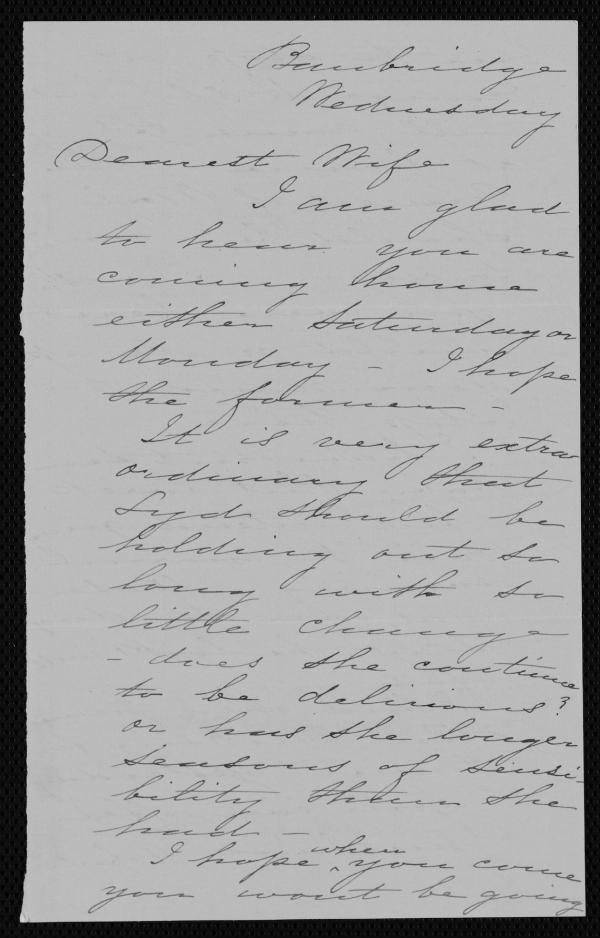 Bambridge
Wednesday
Dearest Wife
I am glad
to hear you are
coming home
either Saturday or
Monday - I hope
the former -
It is very extra
ordinary that
Syd should be
holding out so
long with so
little change
- does she continue
to be delirious?
or has she longer
seasons of sensi-
bility than she
had -
I hope ^when you come
you wont be going